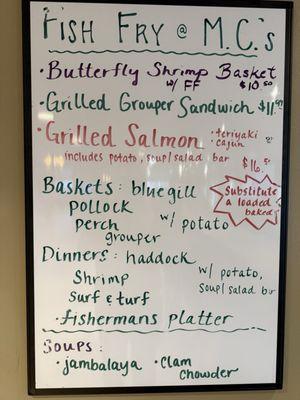 FISH FRY @ M.C.'s
• Butterfly Shrimp Basket
w/ FF $10.50
• Grilled Grouper Sandwich $11.00
• Grilled Salmon • teriyaki
• cajun
includes potato, soup/salad bar $16.50
Baskets: bluegill
pollock
perch w/ potato
grouper
Substitute
a loaded
baked
Dinners: haddock
Shrimp
surf & turf
w/ potato,
soup/salad bar
• fishermans platter
SOUPS:
• jambalaya • Clam
Chowder